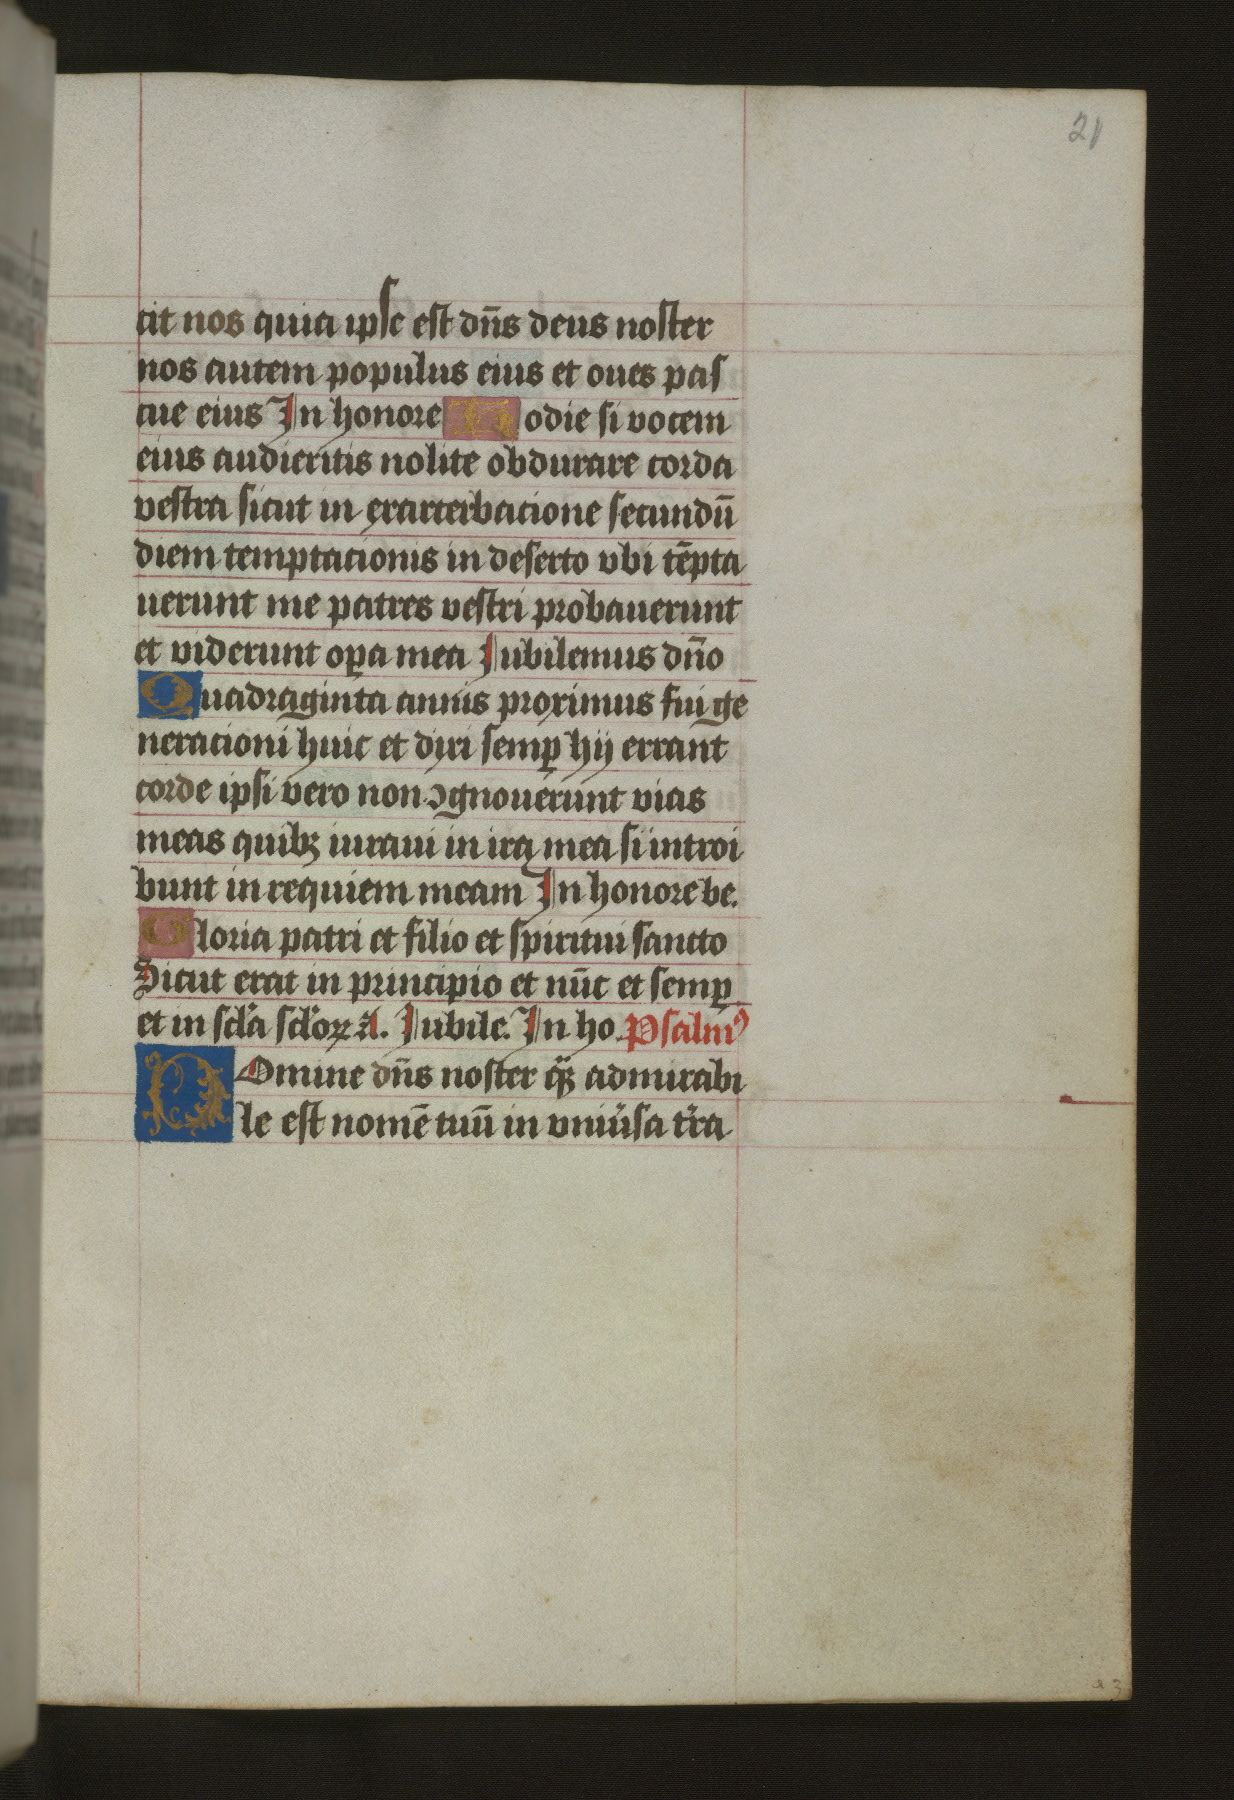 21
cit nos quia ipse est dn̄s deus noster
nos autem populus eius et oues pas
cue eius In honore Hodie si vocem
eius audieritis nolite obdurare corda
vestra sicut in exarcerbacione secundū
diem temptacionis in deserto vbi tēpta
uerunt me patres vestri probauerunt
et viderunt oꝑa mea Jubilemus dn̄o
Quadraginta annis proximus fui ge
neracioni huic et dixi semꝑ hij errant
corde ipsi vero non ꝯgnouerunt vias
meas quibꝫ iuraui in ira mea si introi
bunt in requiem meam In honore be.
Gloria patri et filio et spiritui sancto
Sicut erat in principio et nūc et semꝑ
et in scl̄a scl̄oꝝ a. Jubile. In ho. Psalmꝰ
Domine dn̄s noster qͣꝫ admirabi
le est nomē tuū in vniu̾sa tr̄ra
a 3